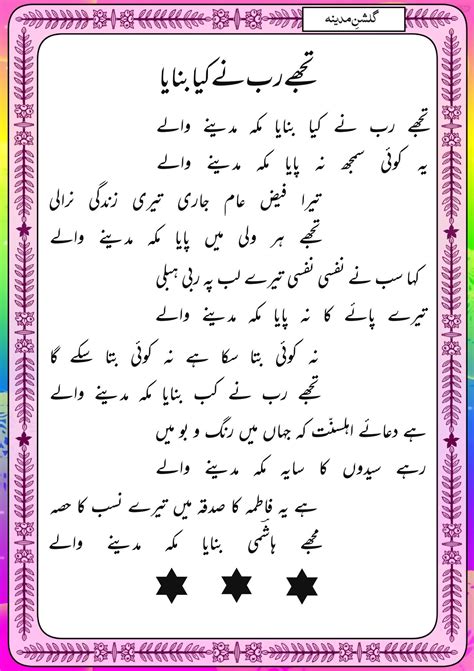 گلشنِ مدینہ
تجھے رب نے کیا بنایا
تجھے رب نے کیا بنایا مکہ مدینے والے
یہ کوئی سمجھ نہ پایا مکہ مدینے والے
تیرا فیض عام جاری تیری زندگی نرالی
تجھے ہر ولی میں پایا مکہ مدینے والے
کہا سب نے نفسی نفسی تیرے لب پہ ربی ہبلی
تیرے پائے کا نہ پایا مکہ مدینے والے
نہ کوئی بتا سکا ہے نہ کوئی بتا سکے گا
تجھے رب نے کب بنایا مکہ مدینے والے
ہے دعائے اہلسنّت کہ جہاں میں رنگ و بو میں
رہے سیدوں کا سایہ مکہ مدینے والے
ہے یہ فاطمہ کا صدقہ میں تیرے نسب کا حصہ
مجھے ہاشمی بنایا مکہ مدینے والے